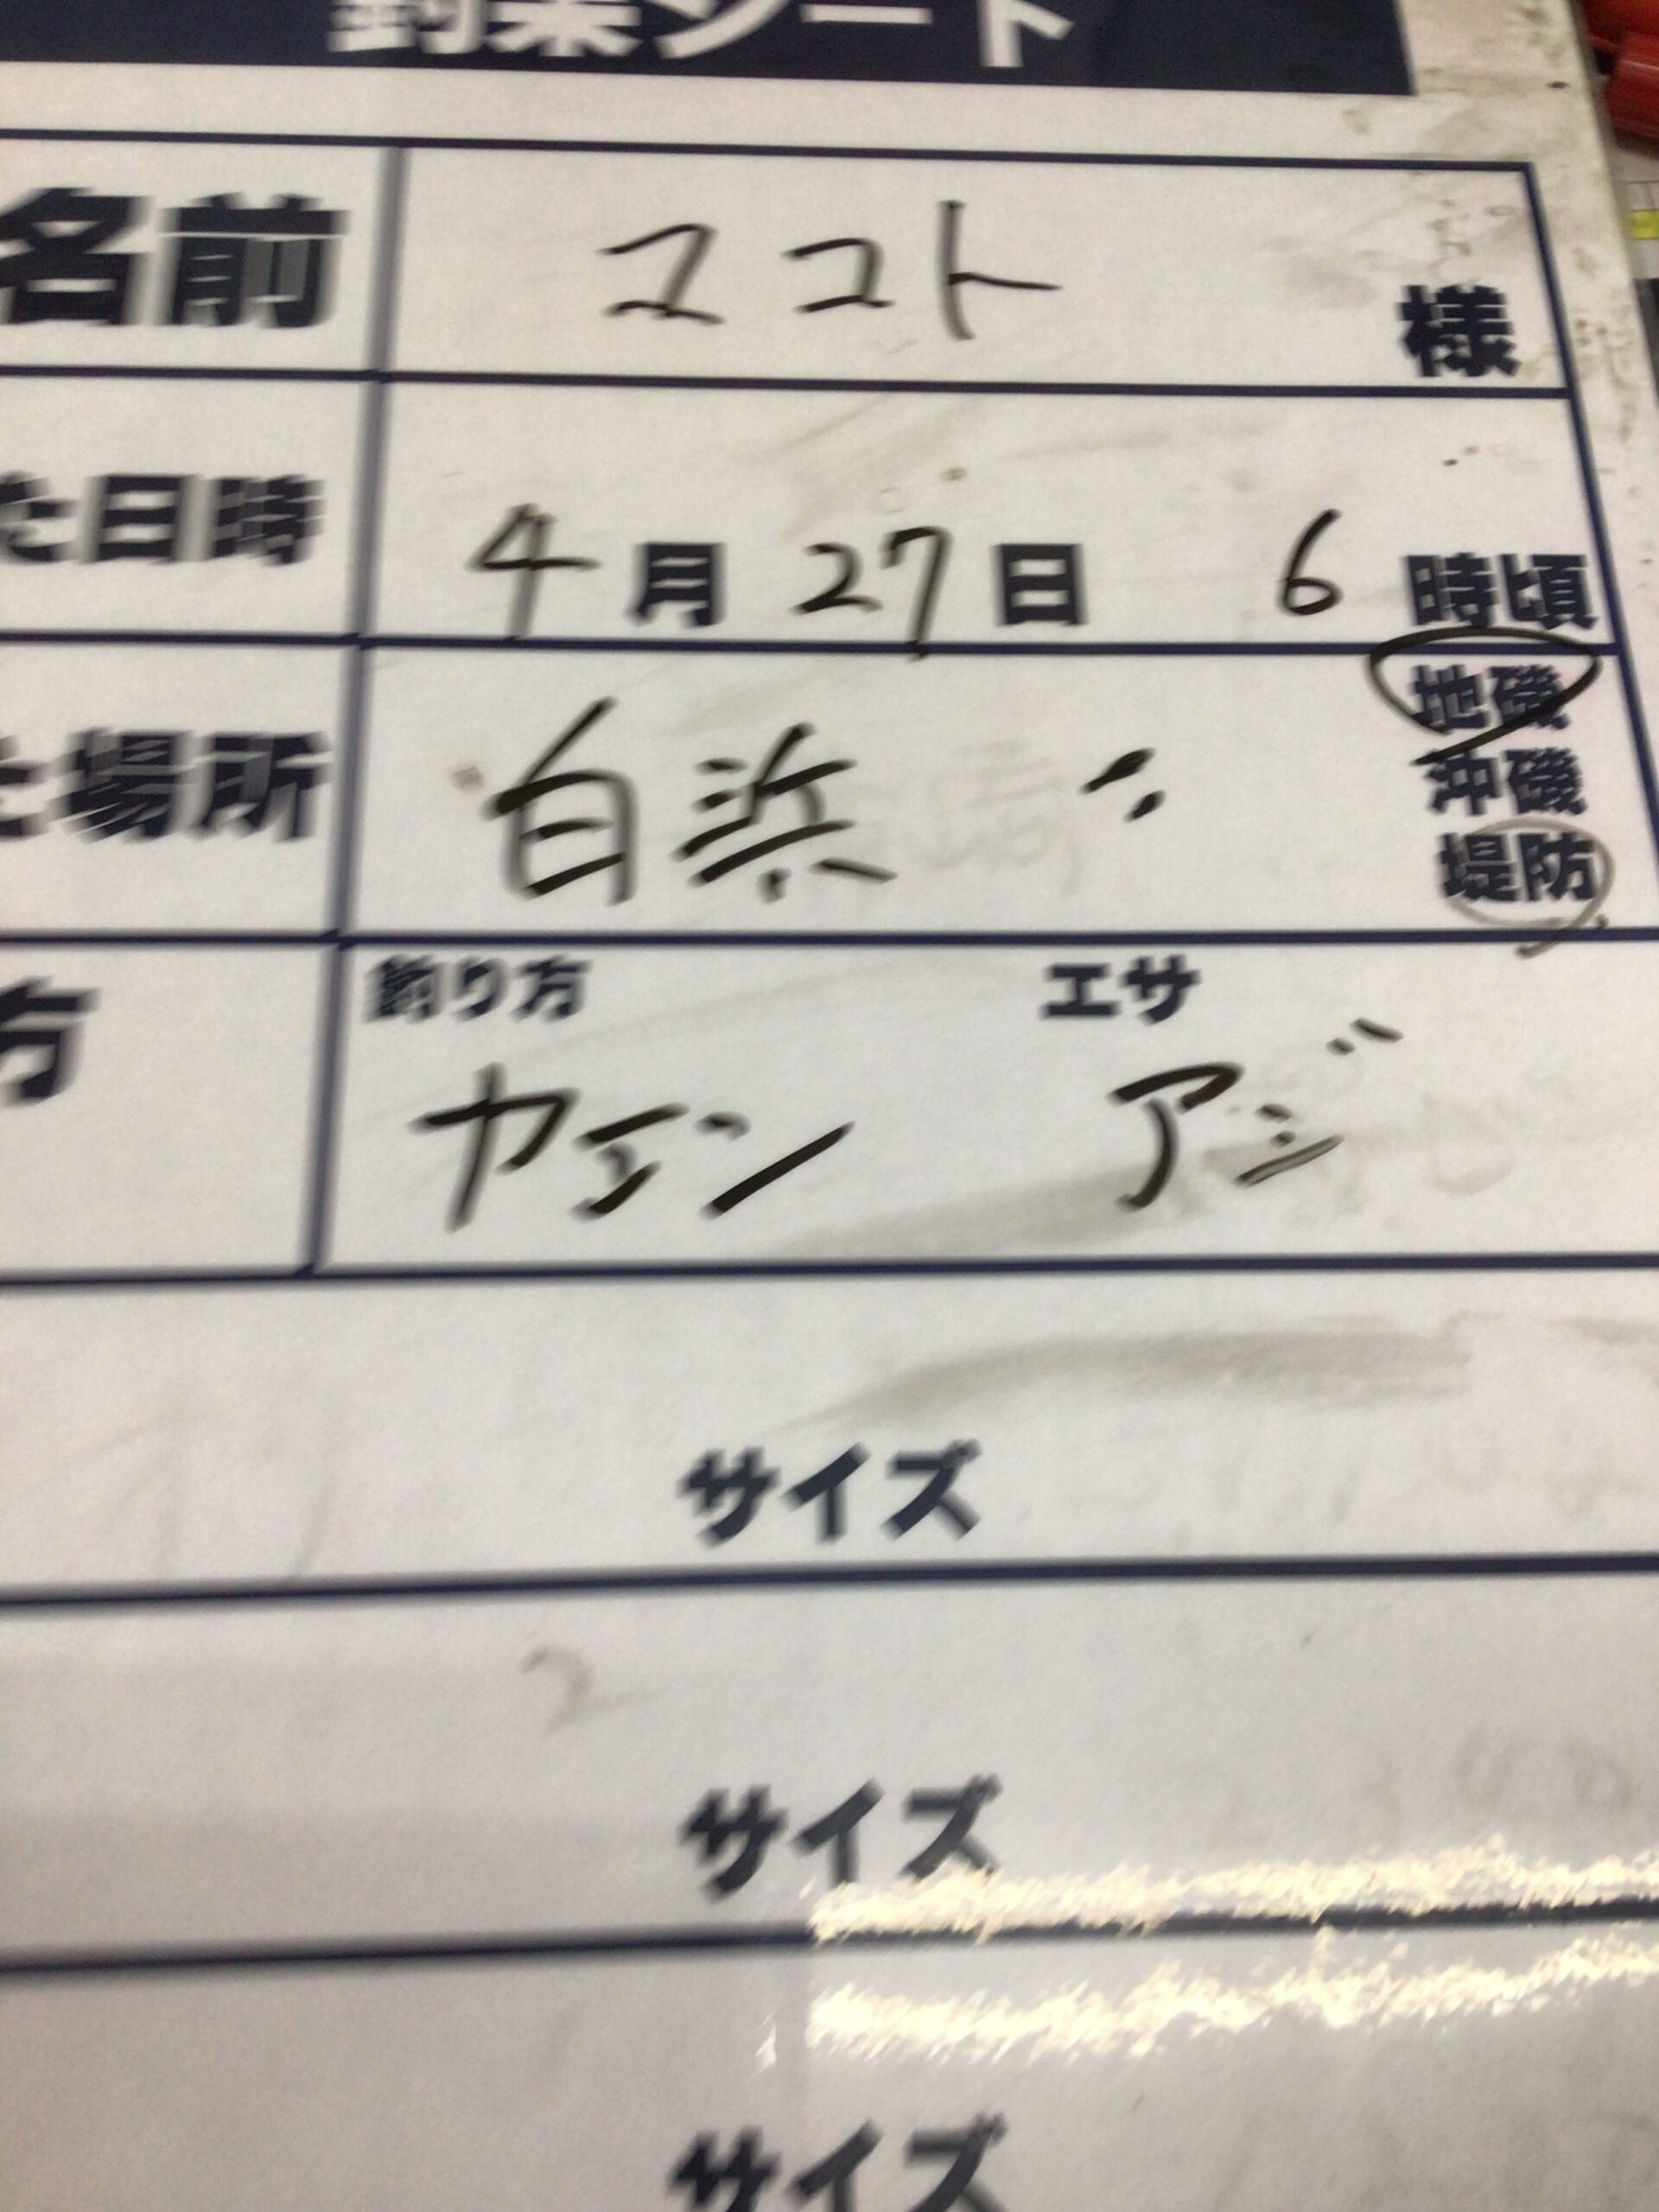 釣果シート
名前 マコト 様
た日時 4月27日 6時頃
た場所 白浜 地磯
沖磯
堤防
方 釣り方 エサ
ヤエン アジ
サイズ
サイズ
サイズ